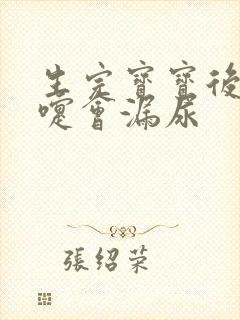 生完寶寶後
嚏會漏尿
張紹荣